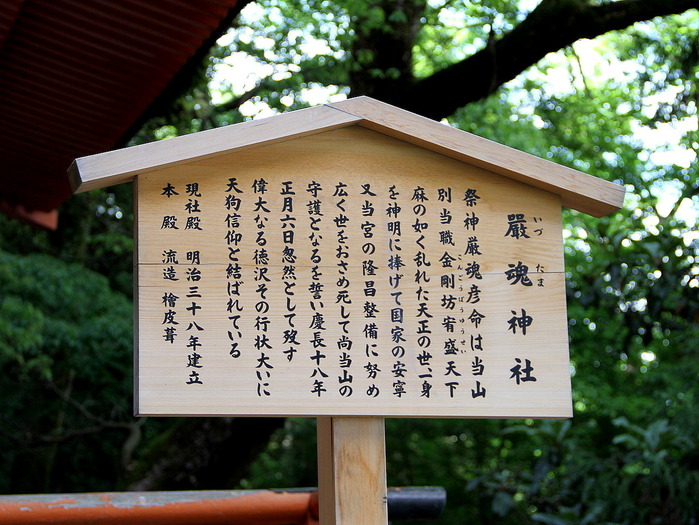 嚴魂神社
いづ たま
祭神厳魂彦命は当山
別当職金剛坊宥盛天下
こんごうぼうゆうせい
麻の如く乱れた天正の世一身
を神明に捧げて国家の安寧
又当宮の隆昌整備に努め
広く世をおさめ死して尚当山の
守護となるを誓い慶長十八年
正月六日忽然として歿す
偉大なる徳沢その行状大いに
天狗信仰と結ばれている
現社殿 明治三十八年建立
本殿 流造 檜皮葺